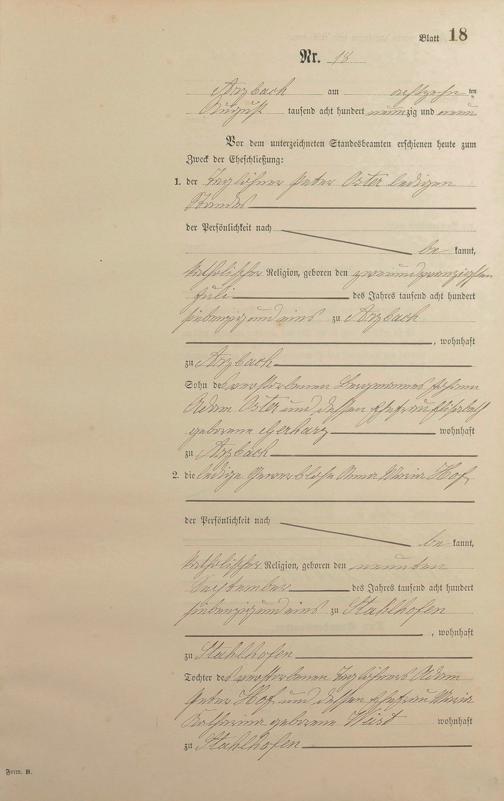 Blatt 18
Nr. 18
Arzbach am achtzehn ten
August tausend acht hundert neunzig und neun
Vor dem unterzeichneten Standesbeamten erschienen heute zum
Zweck der Eheschließung:
1. der Taglöhner Peter Oster ledigen
Standes
der Persönlichkeit nach
be kannt,
katholischer Religion, geboren den zweiundzwanzigsten
Juli des Jahres tausend acht hundert
siebenzig und eins zu Arzbach
, wohnhaft
zu Arzbach
Sohn des verstorbenen Bergmannes Johann
Adam Oster und dessen Ehefrau Elisabeth
geborene Gerharz wohnhaft
zu Arzbach
2. die ledige Gewerblose Anna Maria Hof
der Persönlichkeit nach
be kannt,
katholischer Religion, geboren den neunten
September des Jahres tausend acht hundert
siebenzig und eins zu Stahlhofen
, wohnhaft
zu Stahlhofen
Tochter des verstorbenen Taglöhners Adam
Peter Hof und dessen Ehefrau Maria
Katharina geborene
wohnhaft
zu Stahlhofen
Form. B.